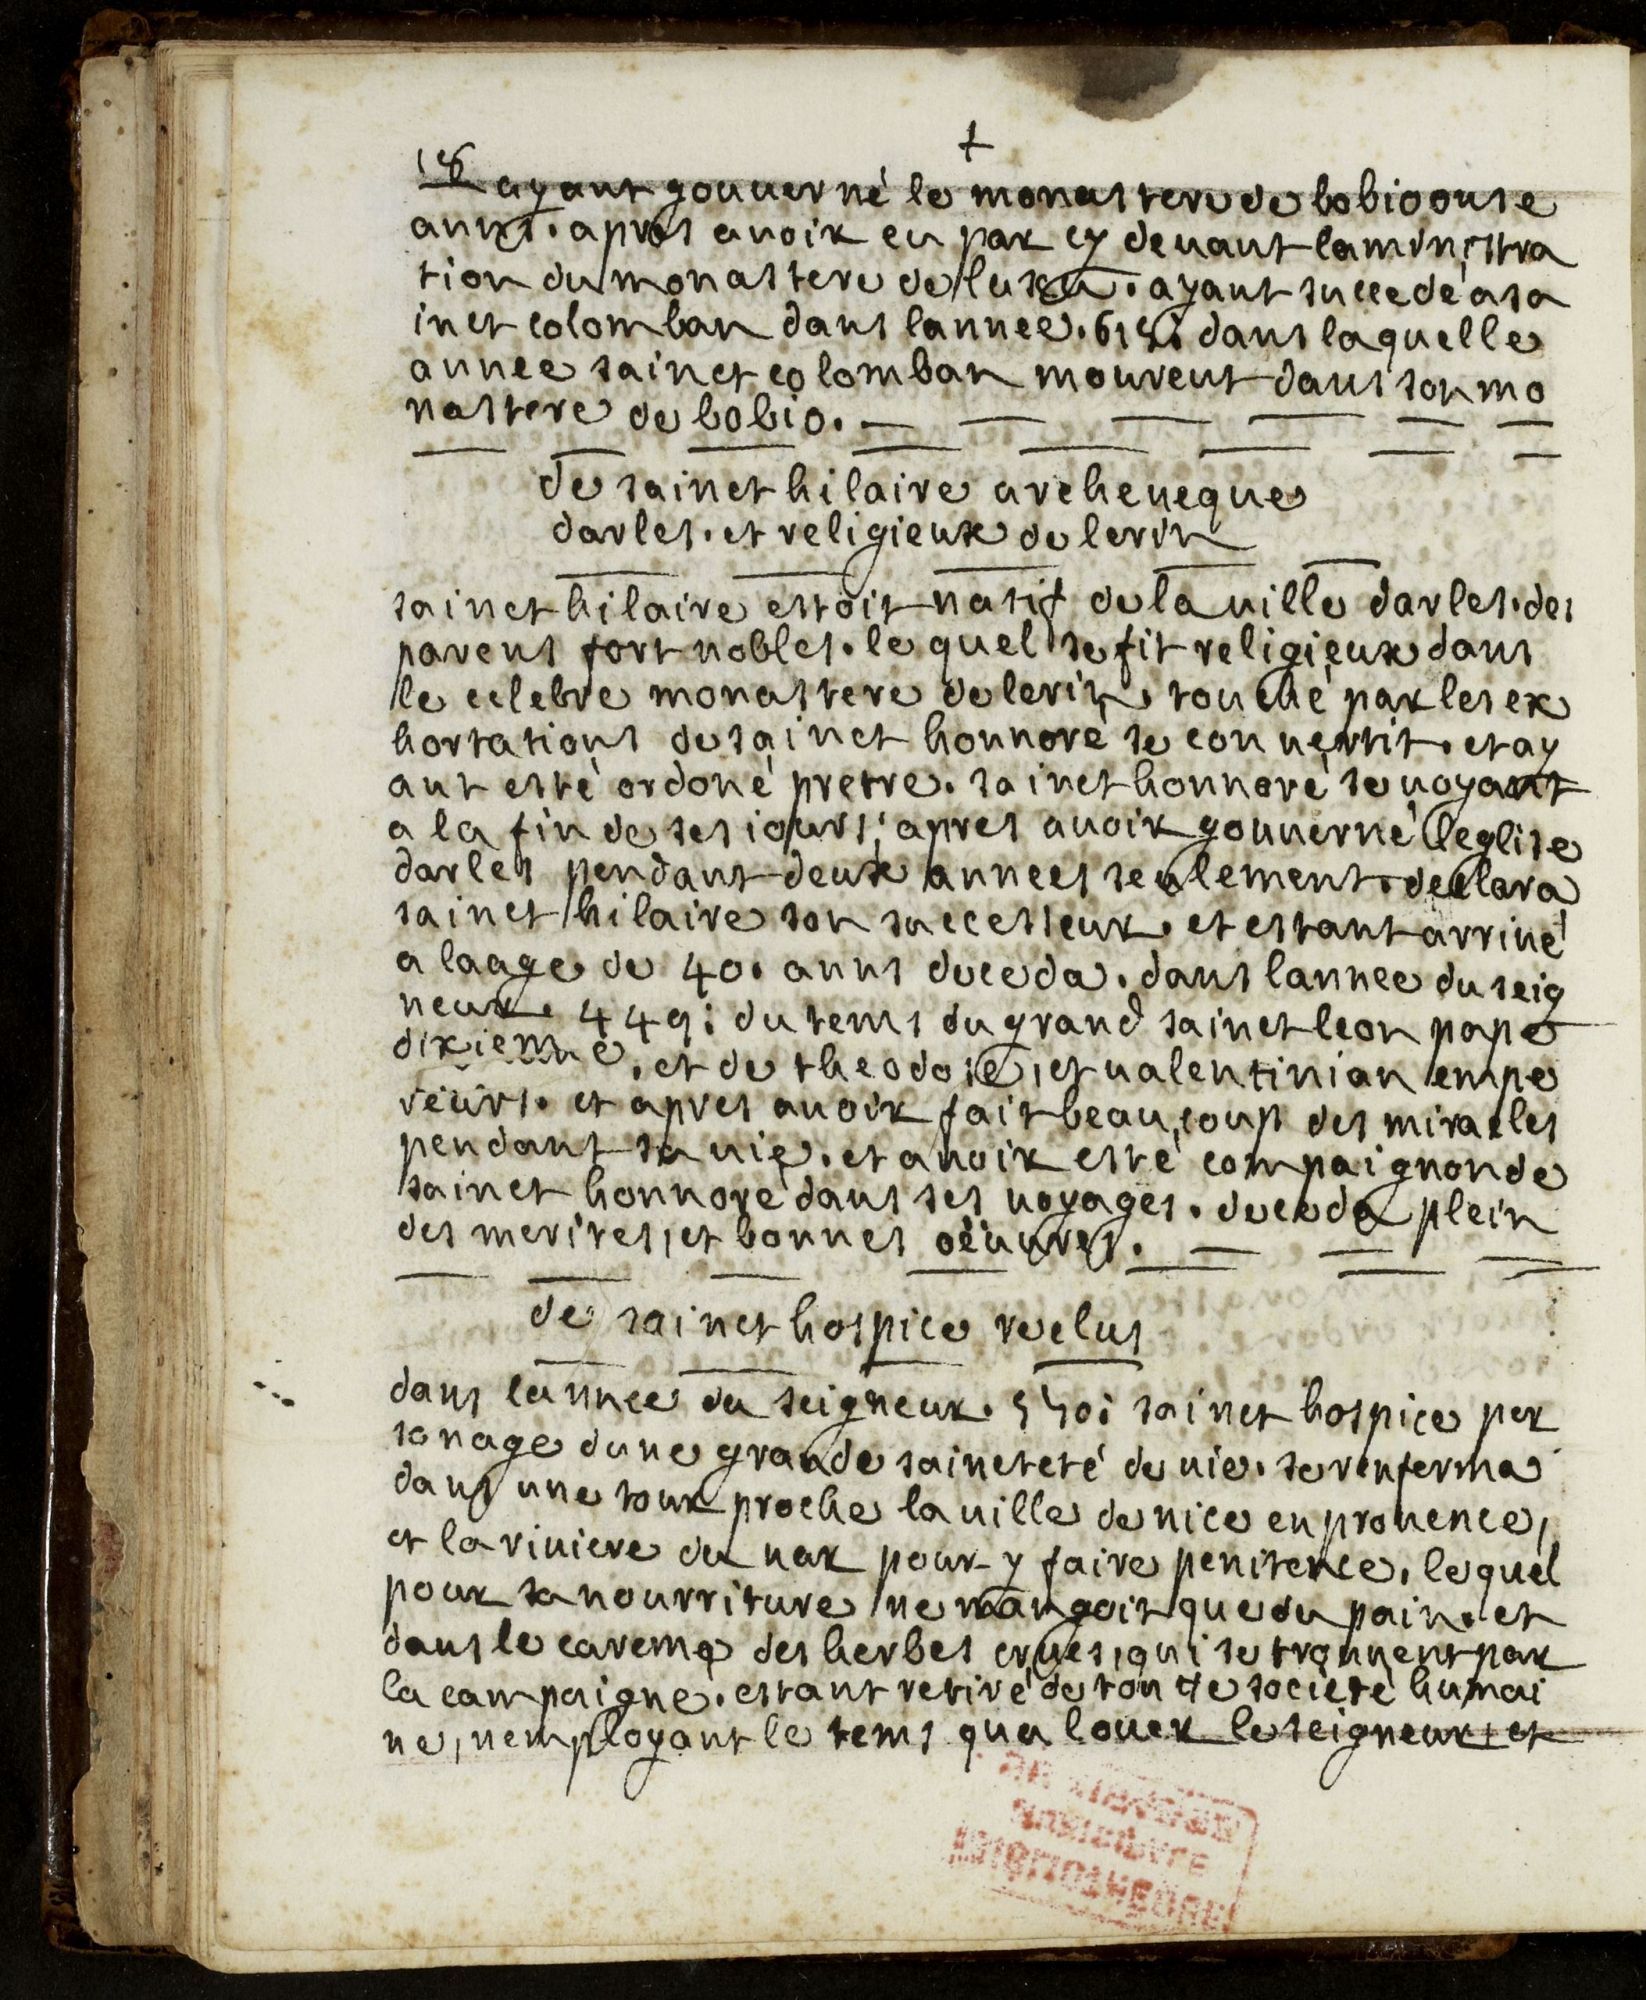 18
+
ayant gouuerné le monastere de bobio onse
anns. apres auoir eu par cy deuant laministra
tion du monastere de luxeu. ayant succedé a sa
inct colomban dans lannee. 615; dans laquelle
annee sainct colomban mourent dans son mo
nastere de bobio.
de sainct hilaire archeueque
darles. et religieux de lerin
sainct hilaire estoit natif de la uille darles. des
parens fort nobles. le quel se fit religieux dans
le celebre monastere de lerin. touché par les ex
hortations de sainct honnoré se conuertit. et ay
ant esté ordoné pretre. sainct honnoré se uoyant
a la fin de ses iours; apres auoir gouuerné leglise
darles pendant deux annees seulement. declara
sainct hilaire son successeur. et estant arriué
a laage de 40. anns deceda. dans lannee du seig
neur. 449; du tems du grand sainct leon pape
dixieme. et de theodose, et ualentinian empe
reurs. et apres auoir fait beaucoup des miracles
pendant sa uie. et auoir esté compaignon de
sainct honnoré dans ses uoyages. deceda plein
des merites, et bonnes oeuures.
de sainct hospice reclus
dans lannee du seigneur. 550; sainct hospice per
sonage dune grande saincteté de uie. se renferma
dans une tour proche la uille de nice en prouence,
et la riuiere du uar pour y faire penitence. le quel
pour sa nourriture ne mangoit que du pain. et
dans le careme des herbes crues, qui se trouuent par
la campaigne. estant retiré de toute societé humai
ne, nemployant le tems qua louer le seigneur, et